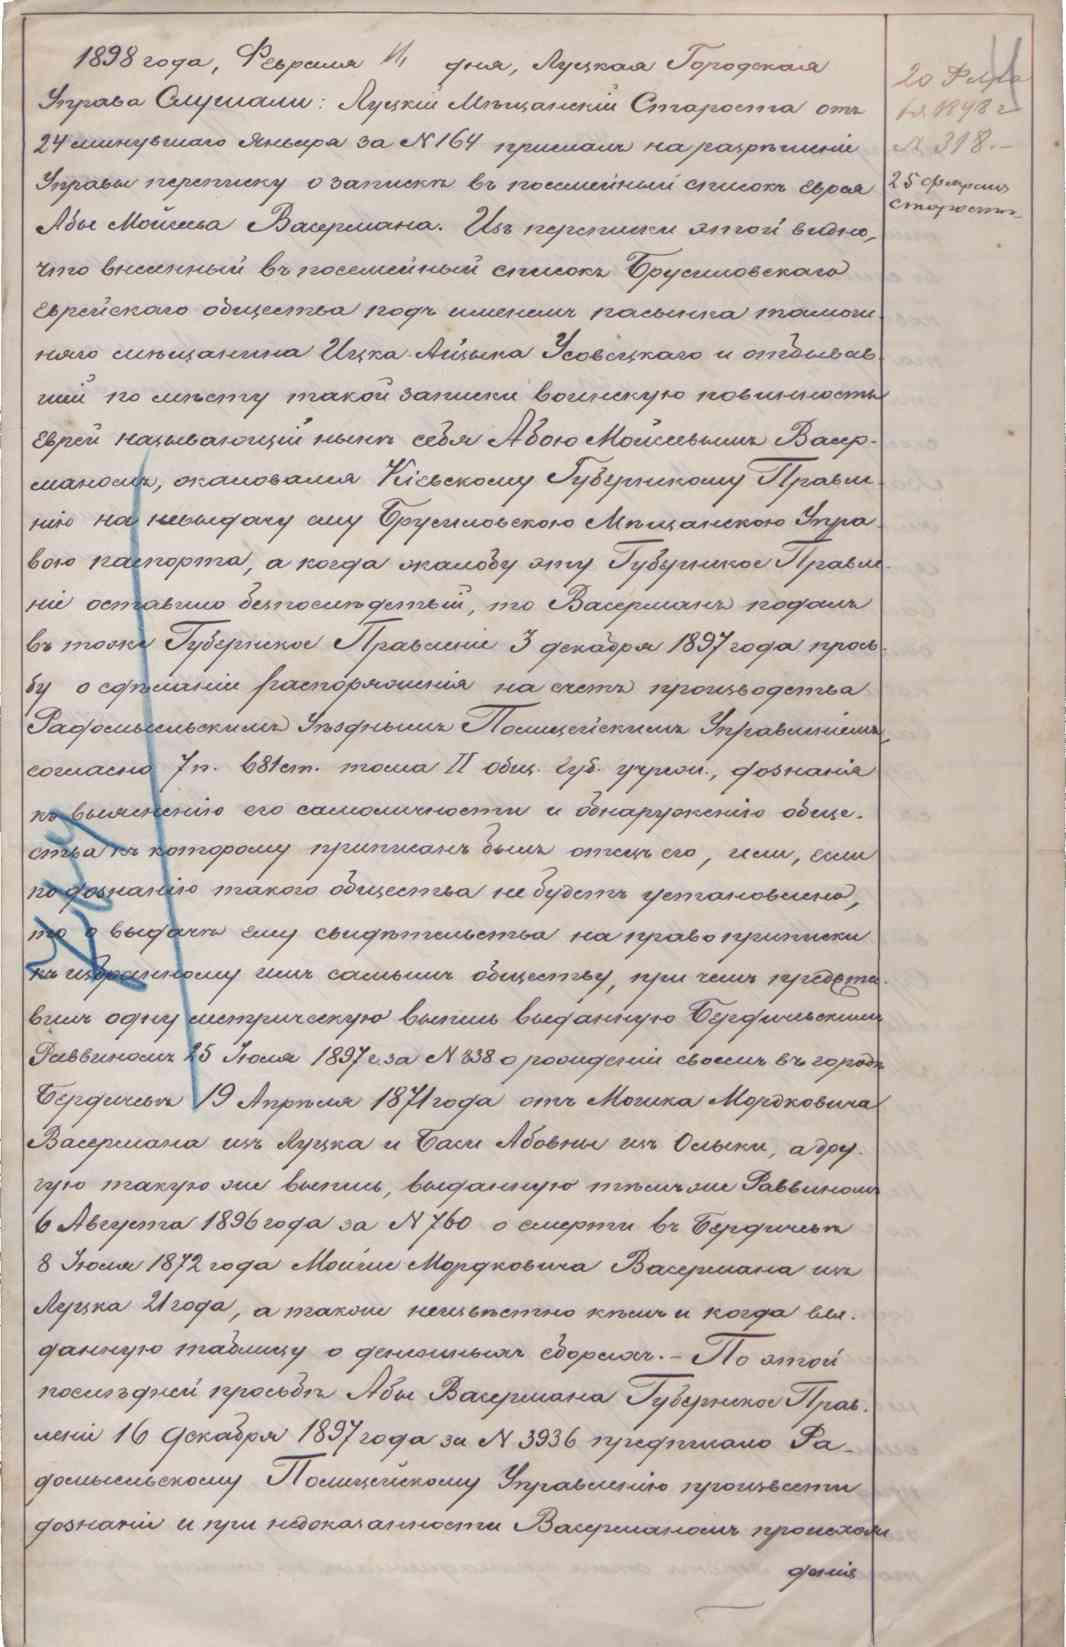 1898 года, Февраля 11 дня, Луцкая Городская
Управа Слушали: Луцкій Мѣщанскій Староста отъ
24 минувшаго Января за № 164 прислалъ на разрѣшеніе
Управы переписку о запискѣ въ посемейный списокъ еврея
Абы Мойсеева Васермана. Изъ переписки этой видно,
что внесенный въ посемейный списокъ Брусиловскаго
еврейскаго общества подъ именемъ пасынка тамош-
няго мѣщанина Ицка-Айзыка Усовецкаго и отбывав-
шій по мѣсту такой записки воинскую повинность
еврей называющій нынѣ себя Абою Мойсеевымъ Васер-
маномъ, жаловался Кіевскому Губернскому Правле-
нію на невыдачу ему Брусиловскою Мѣщанскою Упра-
вою паспорта, а когда жалобу эту Губернское Правле-
ніе оставило безпослѣдствій, то Васерманъ подалъ
въ тоже Губернское Правленіе 3 декабря 1897 года прось-
бу о сдѣланіи распоряженія на счетъ производства
Радомысльскимъ Уѣзднымъ Полицейскимъ Управленіемъ,
согласно 7 п. 681 ст. тома II общ. губ. учреж., дознанія
къ выясненію его самоличности и обнаруженію обще-
ства къ которому приписанъ былъ отецъ его, или, если
по дознанію такого общества не будетъ установлено,
то о выдачѣ ему свидѣтельства на право приписки
къ избранному имъ самымъ обществу, при чемъ предста-
вилъ одну метрическую выпись выданную Бердичевскимъ
Раввиномъ 25 Іюля 1897 г. за № 838 о рожденіи своемъ въ городѣ
Бердичевѣ 19 Апрѣля 1871 года отъ Мошка Мордковича
Васермана изъ Луцка и Баси Абовны изъ Олыки, а дру-
гую такую же выпись, выданную тѣмъ же Раввиномъ
6 Августа 1896 года за № 760 о смерти въ Бердичевѣ
8 Іюля 1872 года Мойше Мордковича Васермана изъ
Луцка 21 года, а также неизвѣстно кѣмъ и когда вы-
данную таблицу о денежныхъ сборахъ. – По этой
послѣдней просьбѣ Абы Васермана Губернское Прав-
леніе 16 декабря 1897 года за № 3936 предписало Ра-
домысльскому Полицейскому Управленію произвести
дознаніе и при недоказанности Васерманомъ происхож-
денія
20 Февра
ля 1898 г
№ 318. –
25 февраля
старостѣ